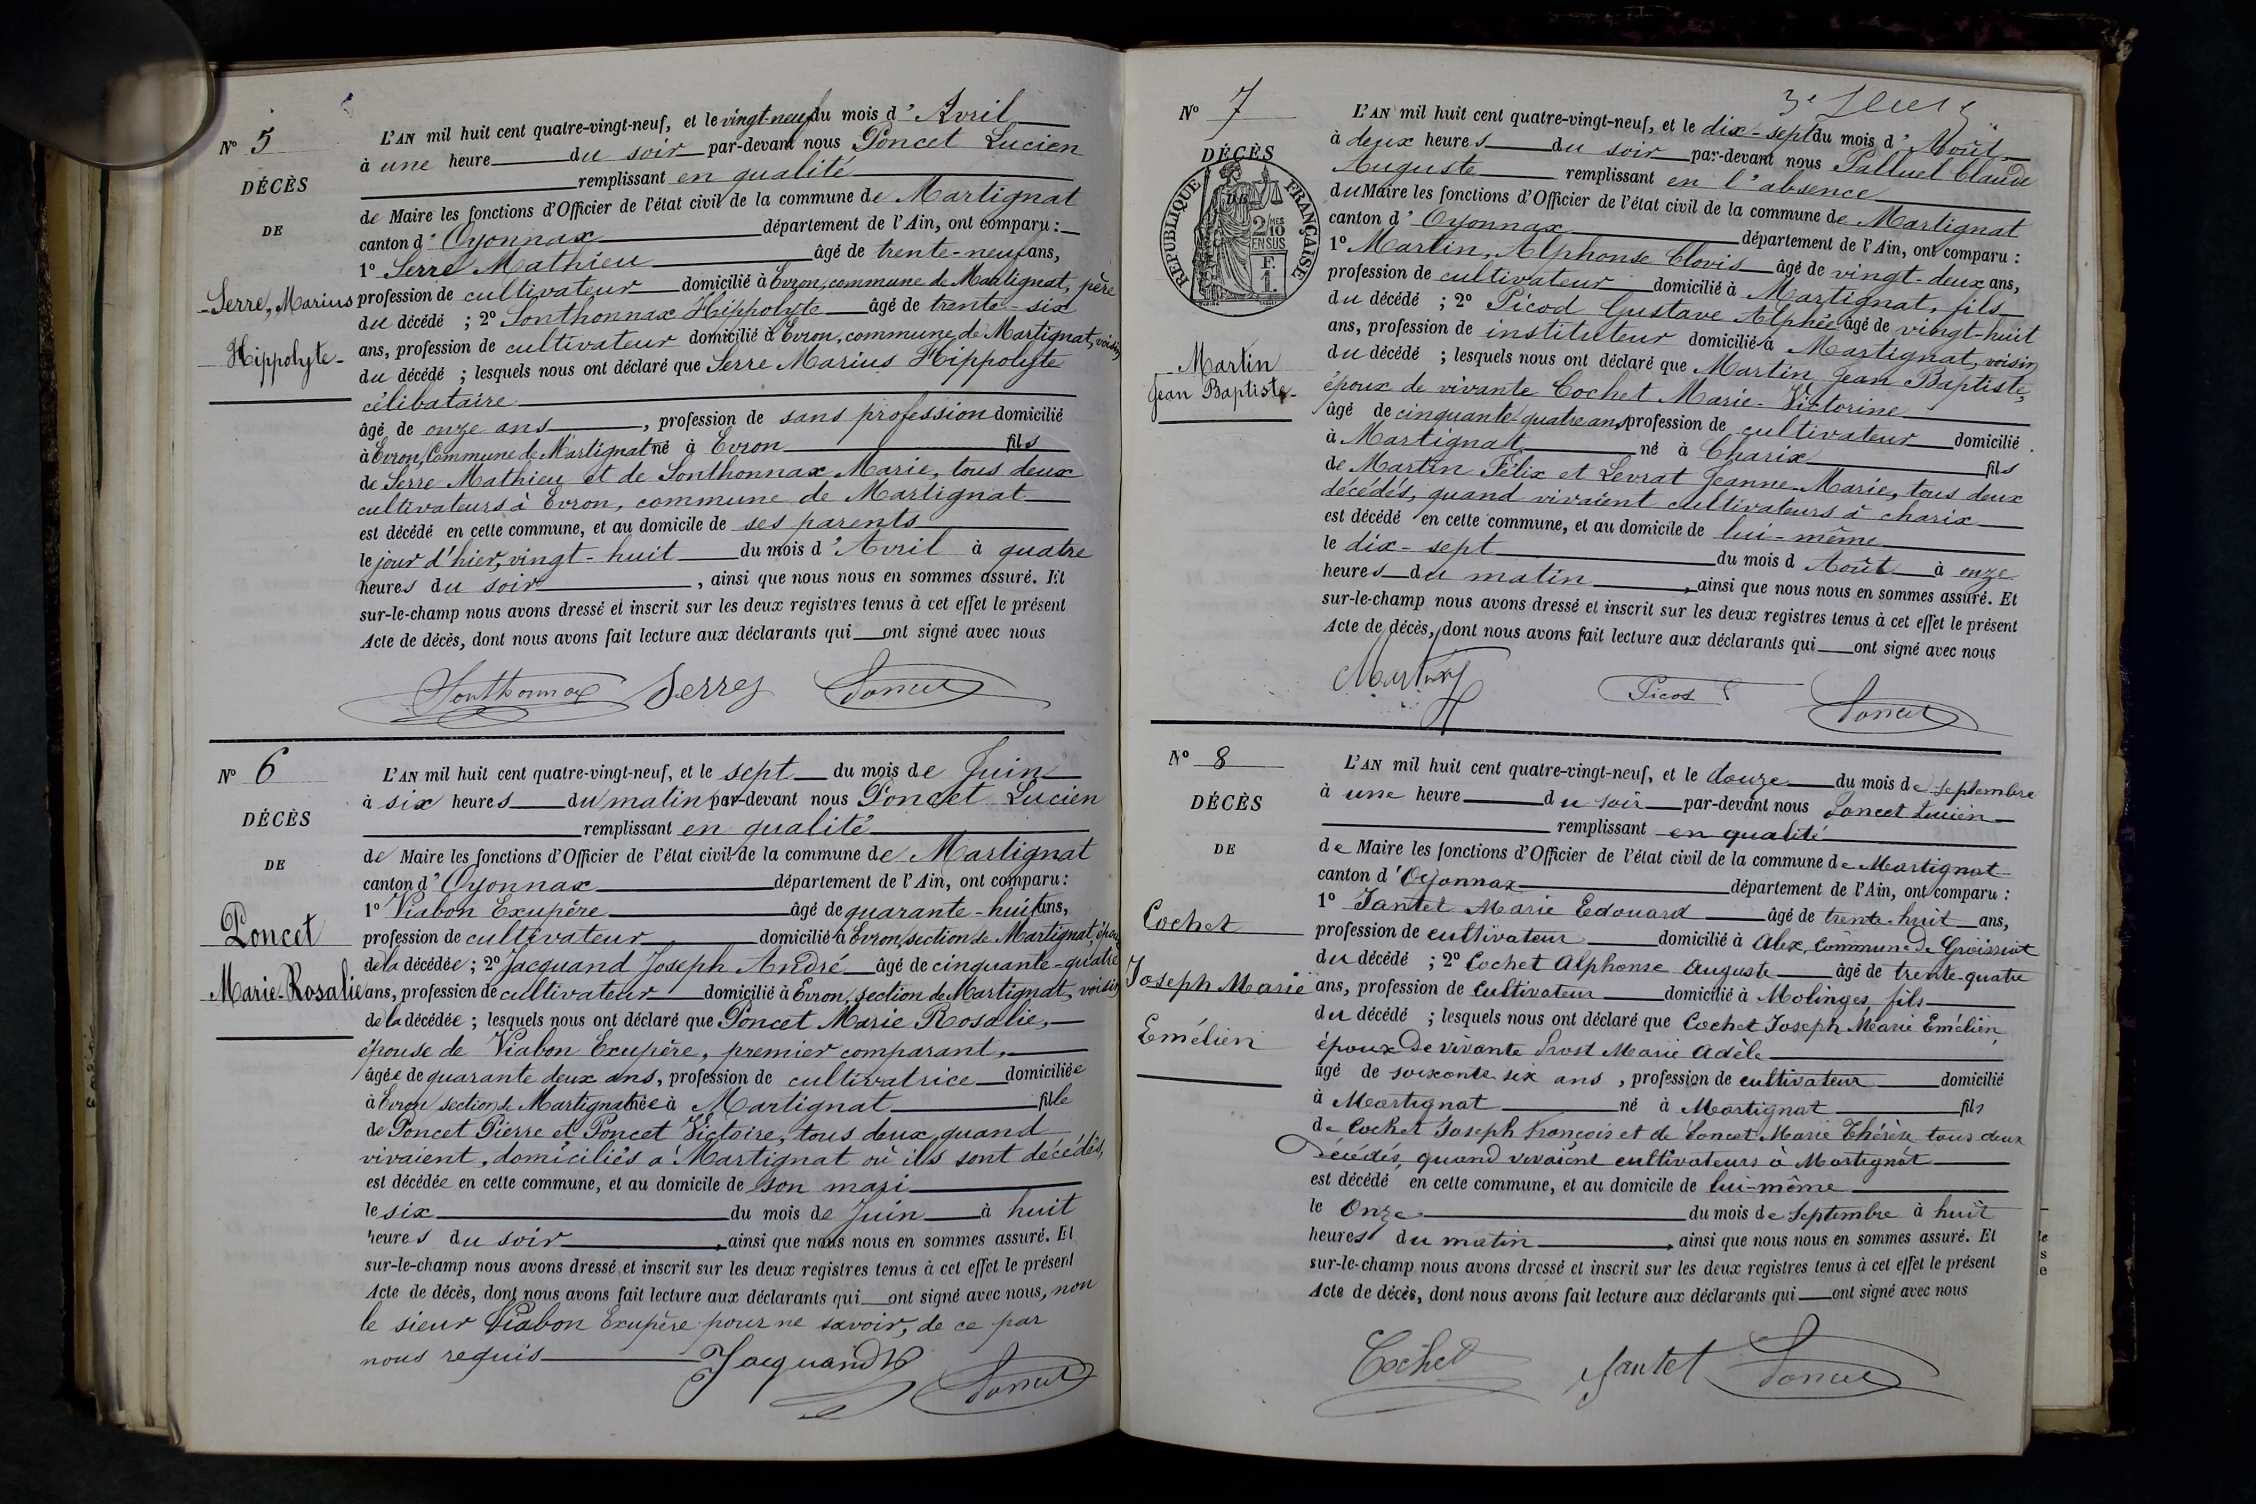 N° 5
DÉCÈS
DE
Serre, Marius
Hippolyte
L'AN mil huit cent quatre-vingt-neuf, et le vingt-neuf du mois d'Avril
à une heure du soir par-devant nous Poncet Lucien
remplissant en qualité
de Maire les fonctions d'Officier de l'état civil de la commune de Martignat
canton d'Oyonnax département de l'Ain, ont comparu :
1° Serre Mathieu âgé de trente-neuf ans,
profession de cultivateur domicilié à Evron, commune de Martignat, père
du décédé ; 2° Sonthonnax Hippolyte âgé de trente-six
ans, profession de cultivateur domicilié à Evron, commune de Martignat, voisin
du décédé ; lesquels nous ont déclaré que Serre Marius Hippolyte
célibataire
âgé de onze ans, profession de sans profession domicilié
à Evron, Commune de Martignat né à Evron fils
de Serre Mathieu et de Sonthonnax Marie, tous deux
cultivateurs à Evron, commune de Martignat
est décédé en cette commune, et au domicile de ses parents
le jour d'hier, vingt-huit du mois d'Avril à quatre
heures du soir, ainsi que nous nous en sommes assuré. Et
sur-le-champ nous avons dressé et inscrit sur les deux registres tenus à cet effet le présent
Acte de décès, dont nous avons fait lecture aux déclarants qui ont signé avec nous
Sonthonnax Serre Poncet
N° 6
DÉCÈS
DE
Poncet
Marie-Rosalie
L'AN mil huit cent quatre-vingt-neuf, et le sept du mois de Juin
à six heures du matin par-devant nous Poncet Lucien
remplissant en qualité
de Maire les fonctions d'Officier de l'état civil de la commune de Martignat
canton d'Oyonnax département de l'Ain, ont comparu :
1° Viabon Exupére âgé de quarante-huit ans,
profession de cultivateur domicilié à Evron, section de Martignat, époux
de la décédée ; 2° Jacquand Joseph André âgé de cinquante-quatre
ans, profession de cultivateur domicilié à Evron, section de Martignat, voisin
de la décédée ; lesquels nous ont déclaré que Poncet Marie Rosalie,
épouse de Viabon Exupère, premier comparant,
âgée de quarante deux ans, profession de cultivatrice domiciliée
à Evron section de Martignat née à Martignat fille
de Poncet Pierre et Poncet Victoire, tous deux quand
vivaient, domiciliés à Martignat où ils sont décédés,
est décédée en cette commune, et au domicile de son mari
le six du mois de Juin à huit
heures du soir, ainsi que nous nous en sommes assuré. Et
sur-le-champ nous avons dressé et inscrit sur les deux registres tenus à cet effet le présent
Acte de décès, dont nous avons fait lecture aux déclarants qui ont signé avec nous, non
le sieur Viabon Exupère pour ne savoir, de ce par
nous requis
Jacquand Poncet
N° 7
DÉCÈS
RÉPUBLIQUE FRANÇAISE
2/10 MES
EN SUS
F.
1.
Martin
Jean Baptiste
L'AN mil huit cent quatre-vingt-neuf, et le dix-sept du mois d'Août
à deux heures du soir par-devant nous Palluel Claude
Auguste remplissant en l'absence
du Maire les fonctions d'Officier de l'état civil de la commune de Martignat
canton d'Oyonnax département de l'Ain, ont comparu :
1° Martin, Alphonse Clovis âgé de vingt-deux ans,
profession de cultivateur domicilié à Martignat, fils
du décédé ; 2° Picod Gustave Alphée âgé de vingt-huit
ans, profession de instituteur domicilié à Martignat, voisin
du décédé ; lesquels nous ont déclaré que Martin Jean Baptiste,
époux de vivante Cochet Marie-Victorine
âgé de cinquante quatre ans, profession de cultivateur domicilié
à Martignat né à Charix fils
de Martin Félix et Levrat Jeanne-Marie, tous deux
décédés, quand vivaient cultivateurs à charix
est décédé en cette commune, et au domicile de lui-même
le dix-sept du mois d'Août à onze
heures du matin, ainsi que nous nous en sommes assuré. Et
sur-le-champ nous avons dressé et inscrit sur les deux registres tenus à cet effet le présent
Acte de décès, dont nous avons fait lecture aux déclarants qui ont signé avec nous
Martin Picod Poncet
N° 8
DÉCÈS
DE
Cochet
Joseph Marie
Emélien
L'AN mil huit cent quatre-vingt-neuf, et le douze du mois de septembre
à une heure du soir par-devant nous Poncet Lucien
remplissant en qualité
de Maire les fonctions d'Officier de l'état civil de la commune de Martignat
canton d'Oyonnax département de l'Ain, ont comparu :
1° Jantet Marie Edouard âgé de trente-huit ans,
profession de cultivateur domicilié à Alex, Commune de Groissiat
du décédé ; 2° Cochet Alphonse Auguste âgé de trente-quatre
ans, profession de cultivateur domicilié à Molinges, fils
du décédé ; lesquels nous ont déclaré que Cochet Joseph Marie Emélien,
époux de vivante Prost Marie Adèle
âgé de soixante six ans, profession de cultivateur domicilié
à Martignat né à Martignat fils
de Cochet Joseph François et de Poncet Marie Thérèse tous deux
Décédés, quand vivaient cultivateurs à Martignat
est décédé en cette commune, et au domicile de lui-même
le Onze du mois de Septembre à huit
heures du matin, ainsi que nous nous en sommes assuré. Et
sur-le-champ nous avons dressé et inscrit sur les deux registres tenus à cet effet le présent
Acte de décès, dont nous avons fait lecture aux déclarants qui ont signé avec nous
Cochet Jantet Poncet